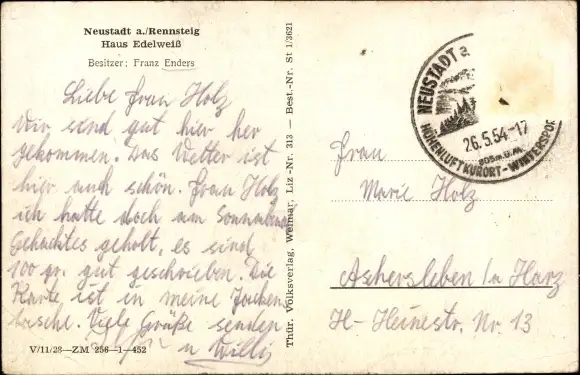 Neustadt a./Rennsteig
Haus Edelweiß
Besitzer: Franz Enders
Liebe Frau Holz
Wir send gut hier her
gekommen. Das Wetter ist
hier auch schön. Frau Holz
ich hatte doch am Sonnabend
Gehacktes geholt, es sind
100 gr. gut geschrieben. Die
Karte ist in meine Jacken
tasche. Viele Grüße senden
u Willi
V/11/28—ZM 256—1—452
Thür. Volksverlag, Weimar, Liz.-Nr. 313 — Best.-Nr. St 1/3621
NEUSTADT a.
26.5.54-17
805m ü.M.
HÖHENLUFTKURORT-WINTERSPOR
Frau
Marie Holz
Ashersleben /a Harz
H-Heinestr. Nr. 13